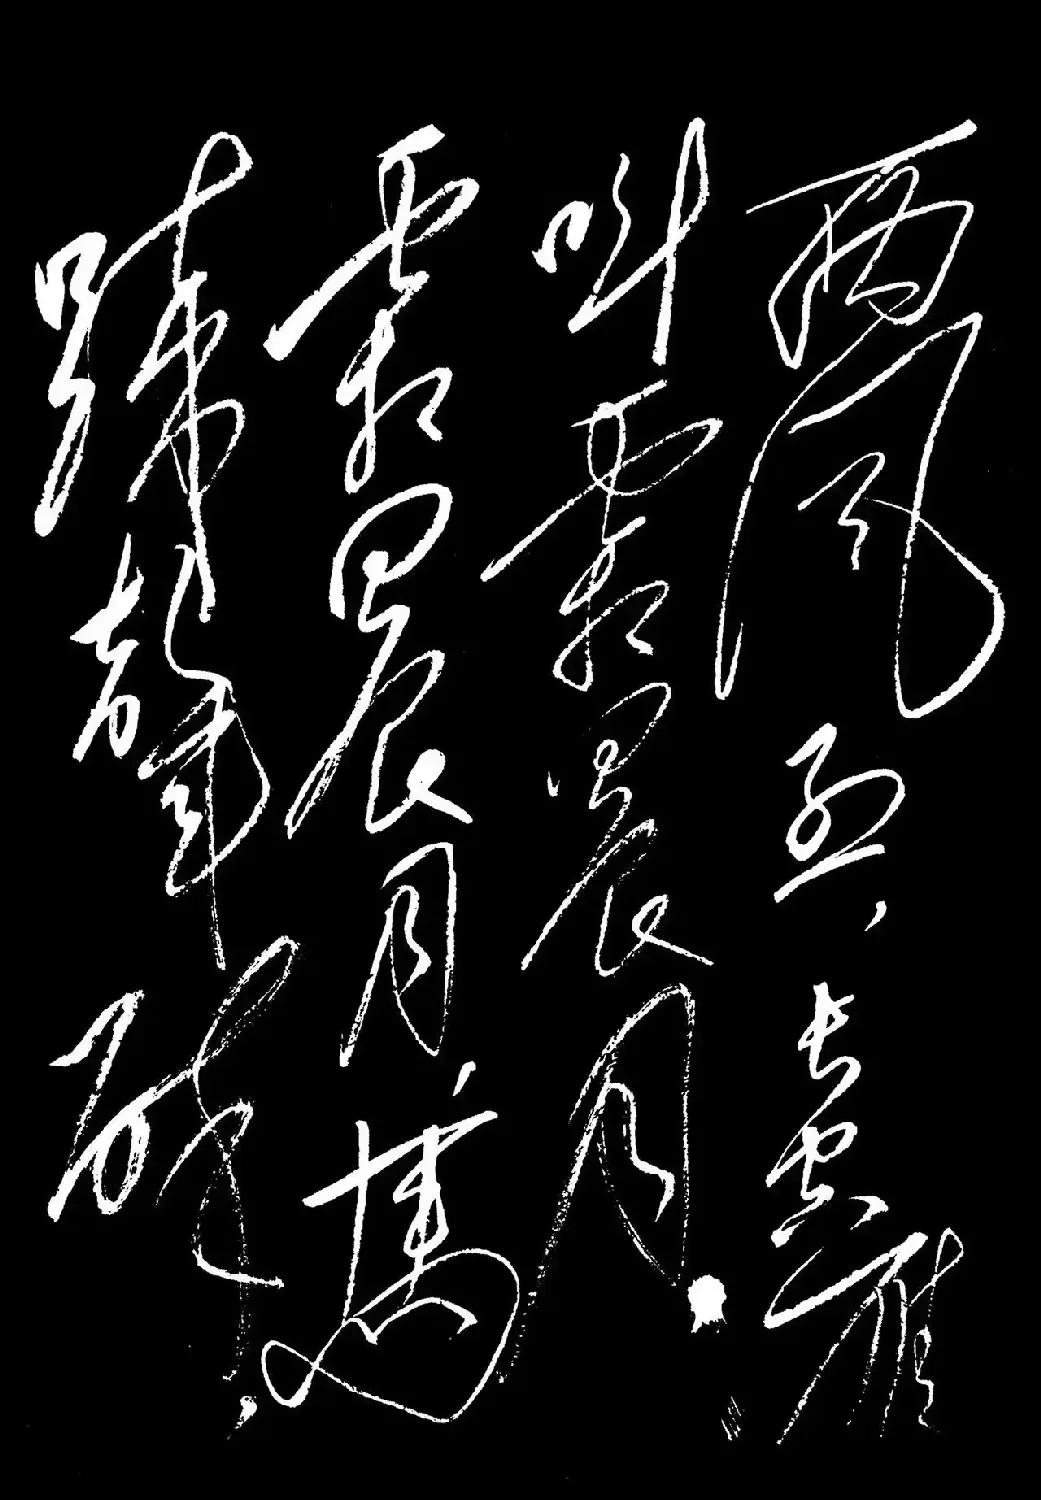 西风烈,长空雁
叫霜晨月。
霜晨月,马
蹄声碎,